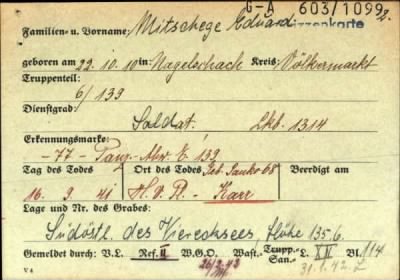 G-A 603/1099
Familien- u. Vorname: Mitschege Eduard
geboren am 22. 10. 10 in: Nagelschach Kreis: Völkermarkt
Truppenteil:
6/139
Dienstgrad:
Soldat. Lkb. 1314
Erkennungsmarke:
-77- Panz-Abw. E 139
Tag des Todes Ort des Todes Beerdigt am
16. 9. 41 H.V.Pl. - Karr
Lage und Nr. des Grabes:
Südöstl. des Vierecksees Höhe 135.6.
Gemeldet durch: V.L. Ref. II W.G.O. Wast.- Trupp.- San.- L. XII Bl. 114
V 4 31.1.42. L